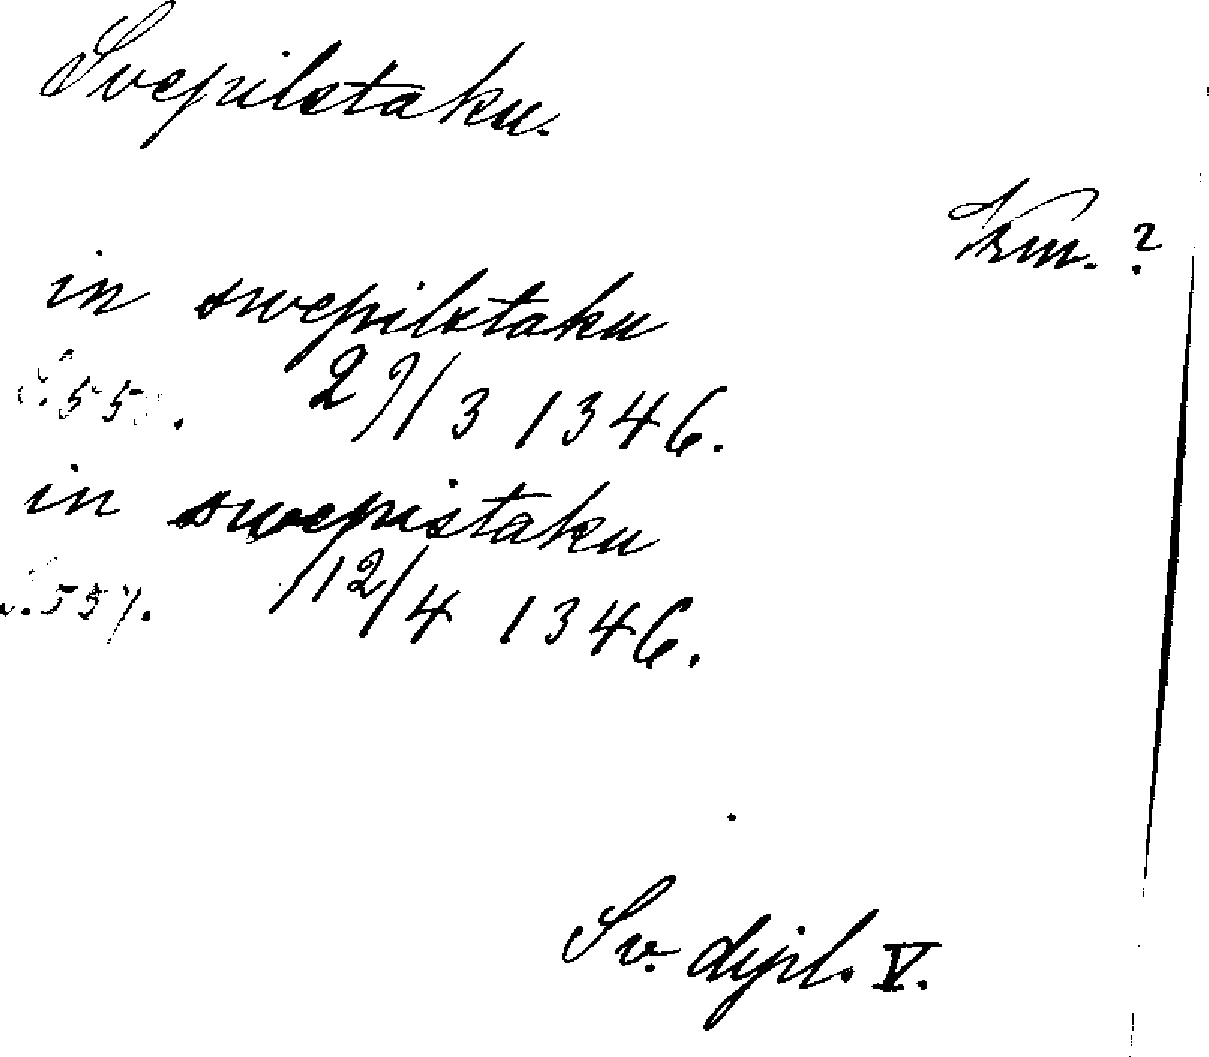 Svepilstaku.
Krm. ?
in swepilstaku
29/3 1346.
in swepistaku
S.557. 12/4 1346.
Sv. dipl. V.